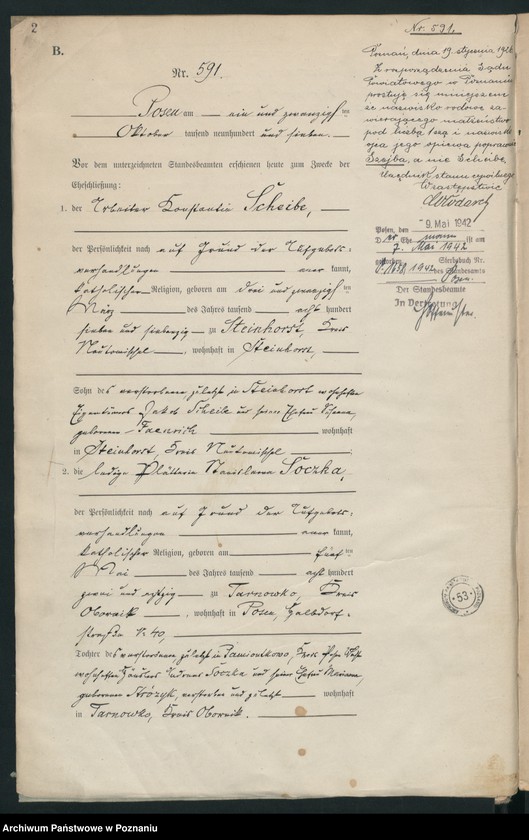 2
B.
Nr. 591.
Posen am ein und zwanzigsten
Oktober tausend neunhundert und sieben.
Vor dem unterzeichneten Standesbeamten erschienen heute zum Zwecke der
Eheschließung:
1. der Arbeiter Konstantin Scheibe,
der Persönlichkeit nach auf Grund der Aufgebots-
verhandlungen aner kannt,
katholischer Religion, geboren am drei und zwanzigsten
März des Jahres tausend acht hundert
sieben und siebenzig zu Steinhorst, Kreis
Neutomischel, wohnhaft in Steinhorst,
Sohn des verstorbenen, zuletzt in Steinhorst wohnhaften
Eigentümers Jakob Scheibe und seiner Ehefrau
geborenen wohnhaft
in Steinhorst, Kreis Neutomischel;
2. die ledige Plätterin Stanislawa Soczka,
der Persönlichkeit nach auf Grund der Aufgebots-
verhandlungen aner kannt,
katholischer Religion, geboren am fünften
Mai des Jahres tausend acht hundert
zwei und achtzig zu Tarnowko, Kreis
Obornik, wohnhaft in Posen, Halbdorf-
straße Nr 40,
Tochter des verstorbenen, zuletzt in Pamiontkowo, Kreis Posen West
wohnhaften Häuslers Andreas Soczka und seiner Ehefrau Marianna,
geborenen verstorben und zuletzt wohnhaft
in Tarnowko, Kreis Obornik.
Nr. 591.
Poznań, dnia 19 stycznia 192
Z rozporządzenia Sądu
Powiatowego w Poznaniu
prostuje się niniejszem
że nazwisko rodowe za-
wierającego małżeństwo
pod liczbą 1szą i nazwisko
ojca jego opiewa poprawnie
Szajba, a nie Scheibe.
Urzędnik stanu cywilnego
W zastępstwie
Posen, den 9. Mai 1942
D er Ehe mann ist am
7. Mai 1942
gestorben Sterbebuch Nr.
1942 des Standesamts
Posen
Der Standesbeamte
In Vertretung
53
Archiwum Państwowe w Poznaniu